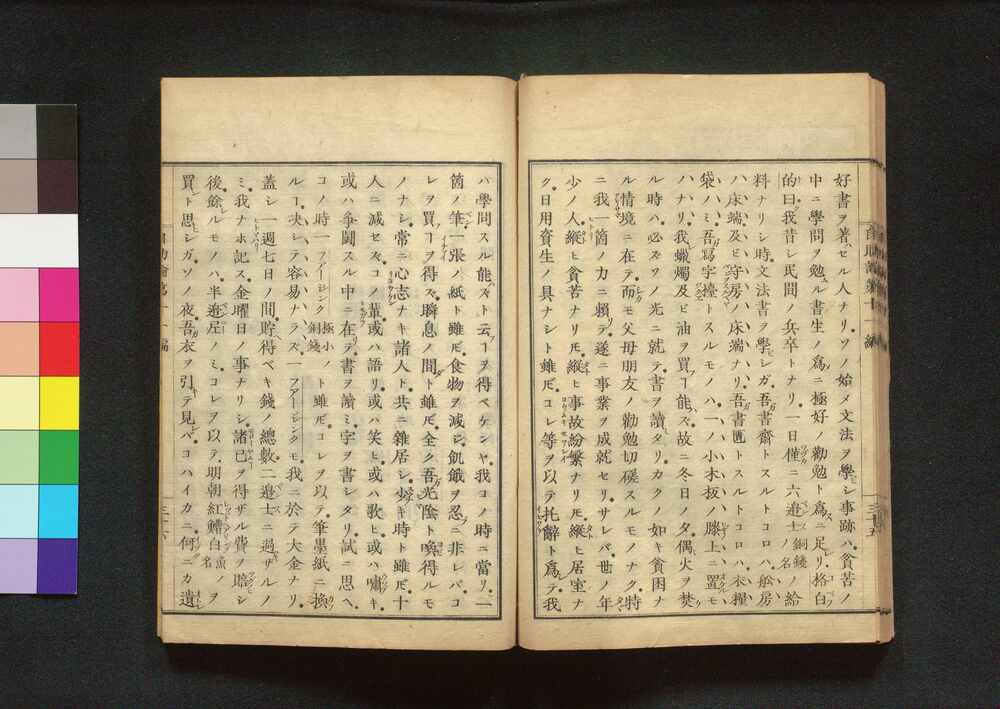 好書ヲ著ハセル人ナリ、ソノ始メ文法ヲ學ビシ事跡ハ、貧苦ノ
中ニ學問ヲ勉ル書生ノ爲ニ極好ノ勸勉ト爲ニ足レリ、格白
的曰ク、我昔シ民間ノ兵卒トナリ、一日僅ニ六邊士銅錢ノ名ノ給
料ナリシ時、文法書ヲ學ビシガ、吾書齋トスルトコロハ、舩房
ハ床端及ビ守房ノ床端ナリ、吾書匱トスルトコロハ、衣糧
袋ノミ、吾寫字檯トスルモノハ、一ノ小木板ノ膝上ニ置モノ
ハナリ、我蠟燭及ビ油ヲ買フヿ能ハズ、故ニ冬日ノ夕、偶火ヲ焚
ル時ハ、必ズソノ光ニ就テ書ヲ讀タリ、カクノ如キ貧困ナ
ル情境ニ在テ、而モ父母朋友ノ勸勉切磋スルモノナク、特
ニ我一箇ノ力ニ賴テ、遂ニ事業ヲ成就セリ、サレバ、世ノ年
少ノ人、縱ヒ貧苦ナリトモ、縱ヒ事故紛繁ナリトモ、縱ヒ居室ナ
ク、日用資生ノ具ナシト雖ドモ、コレ等ヲ以テ托辭ト爲テ、我
ハ學問スル能ハズト云フヿヲ得ベケンヤ、我コノ時ニ當リ、一
箇ノ筆一張ノ紙ト雖ドモ、食物ヲ減ジ、飢餓ヲ忍ニ非レバ、コ
レヲ買フヿヲ得ズ、瞬息ノ間ト雖ドモ、全ク吾光陰ト喚得ルモ
ノナシ、常ニ心志ナキ諸人ト共ニ雜居シ、少キ時ト雖ドモ、十
人ニ減セズ、コノ輩或ハ語リ、或ハ笑ヒ、或ハ歌ヒ、或ハ嘯キ、
或ハ爭鬪スル中ニ在テ、書ヲ讀ミ、字ヲ書シタリ、試ニ思ヘ、
コノ時一フアーシンク極小銅錢ノト雖ドモ、コレヲ以テ筆墨紙ニ換
ルヿ、決シテ容易ナラズ、一フアーシンクモ、我ニ於テ大金ナリ、
蓋シ一週七日ノ間、貯得ベキ錢ノ總數、二邊士ニ過ザルノ
ミ、我ナホ記ス、金曜日ノ事ナリシ、諸已ヲ得ザル費ヲ賠シ
後、餘ルモノハ半邊尼ノミ、コレヲ以テ、明朝紅鰽白魚ノ名ヲ
買ント思ヒシガ、ソノ夜吾衣ヲ引テ見レバ、コハイカニ、何ニカ遺
三十五
三十六